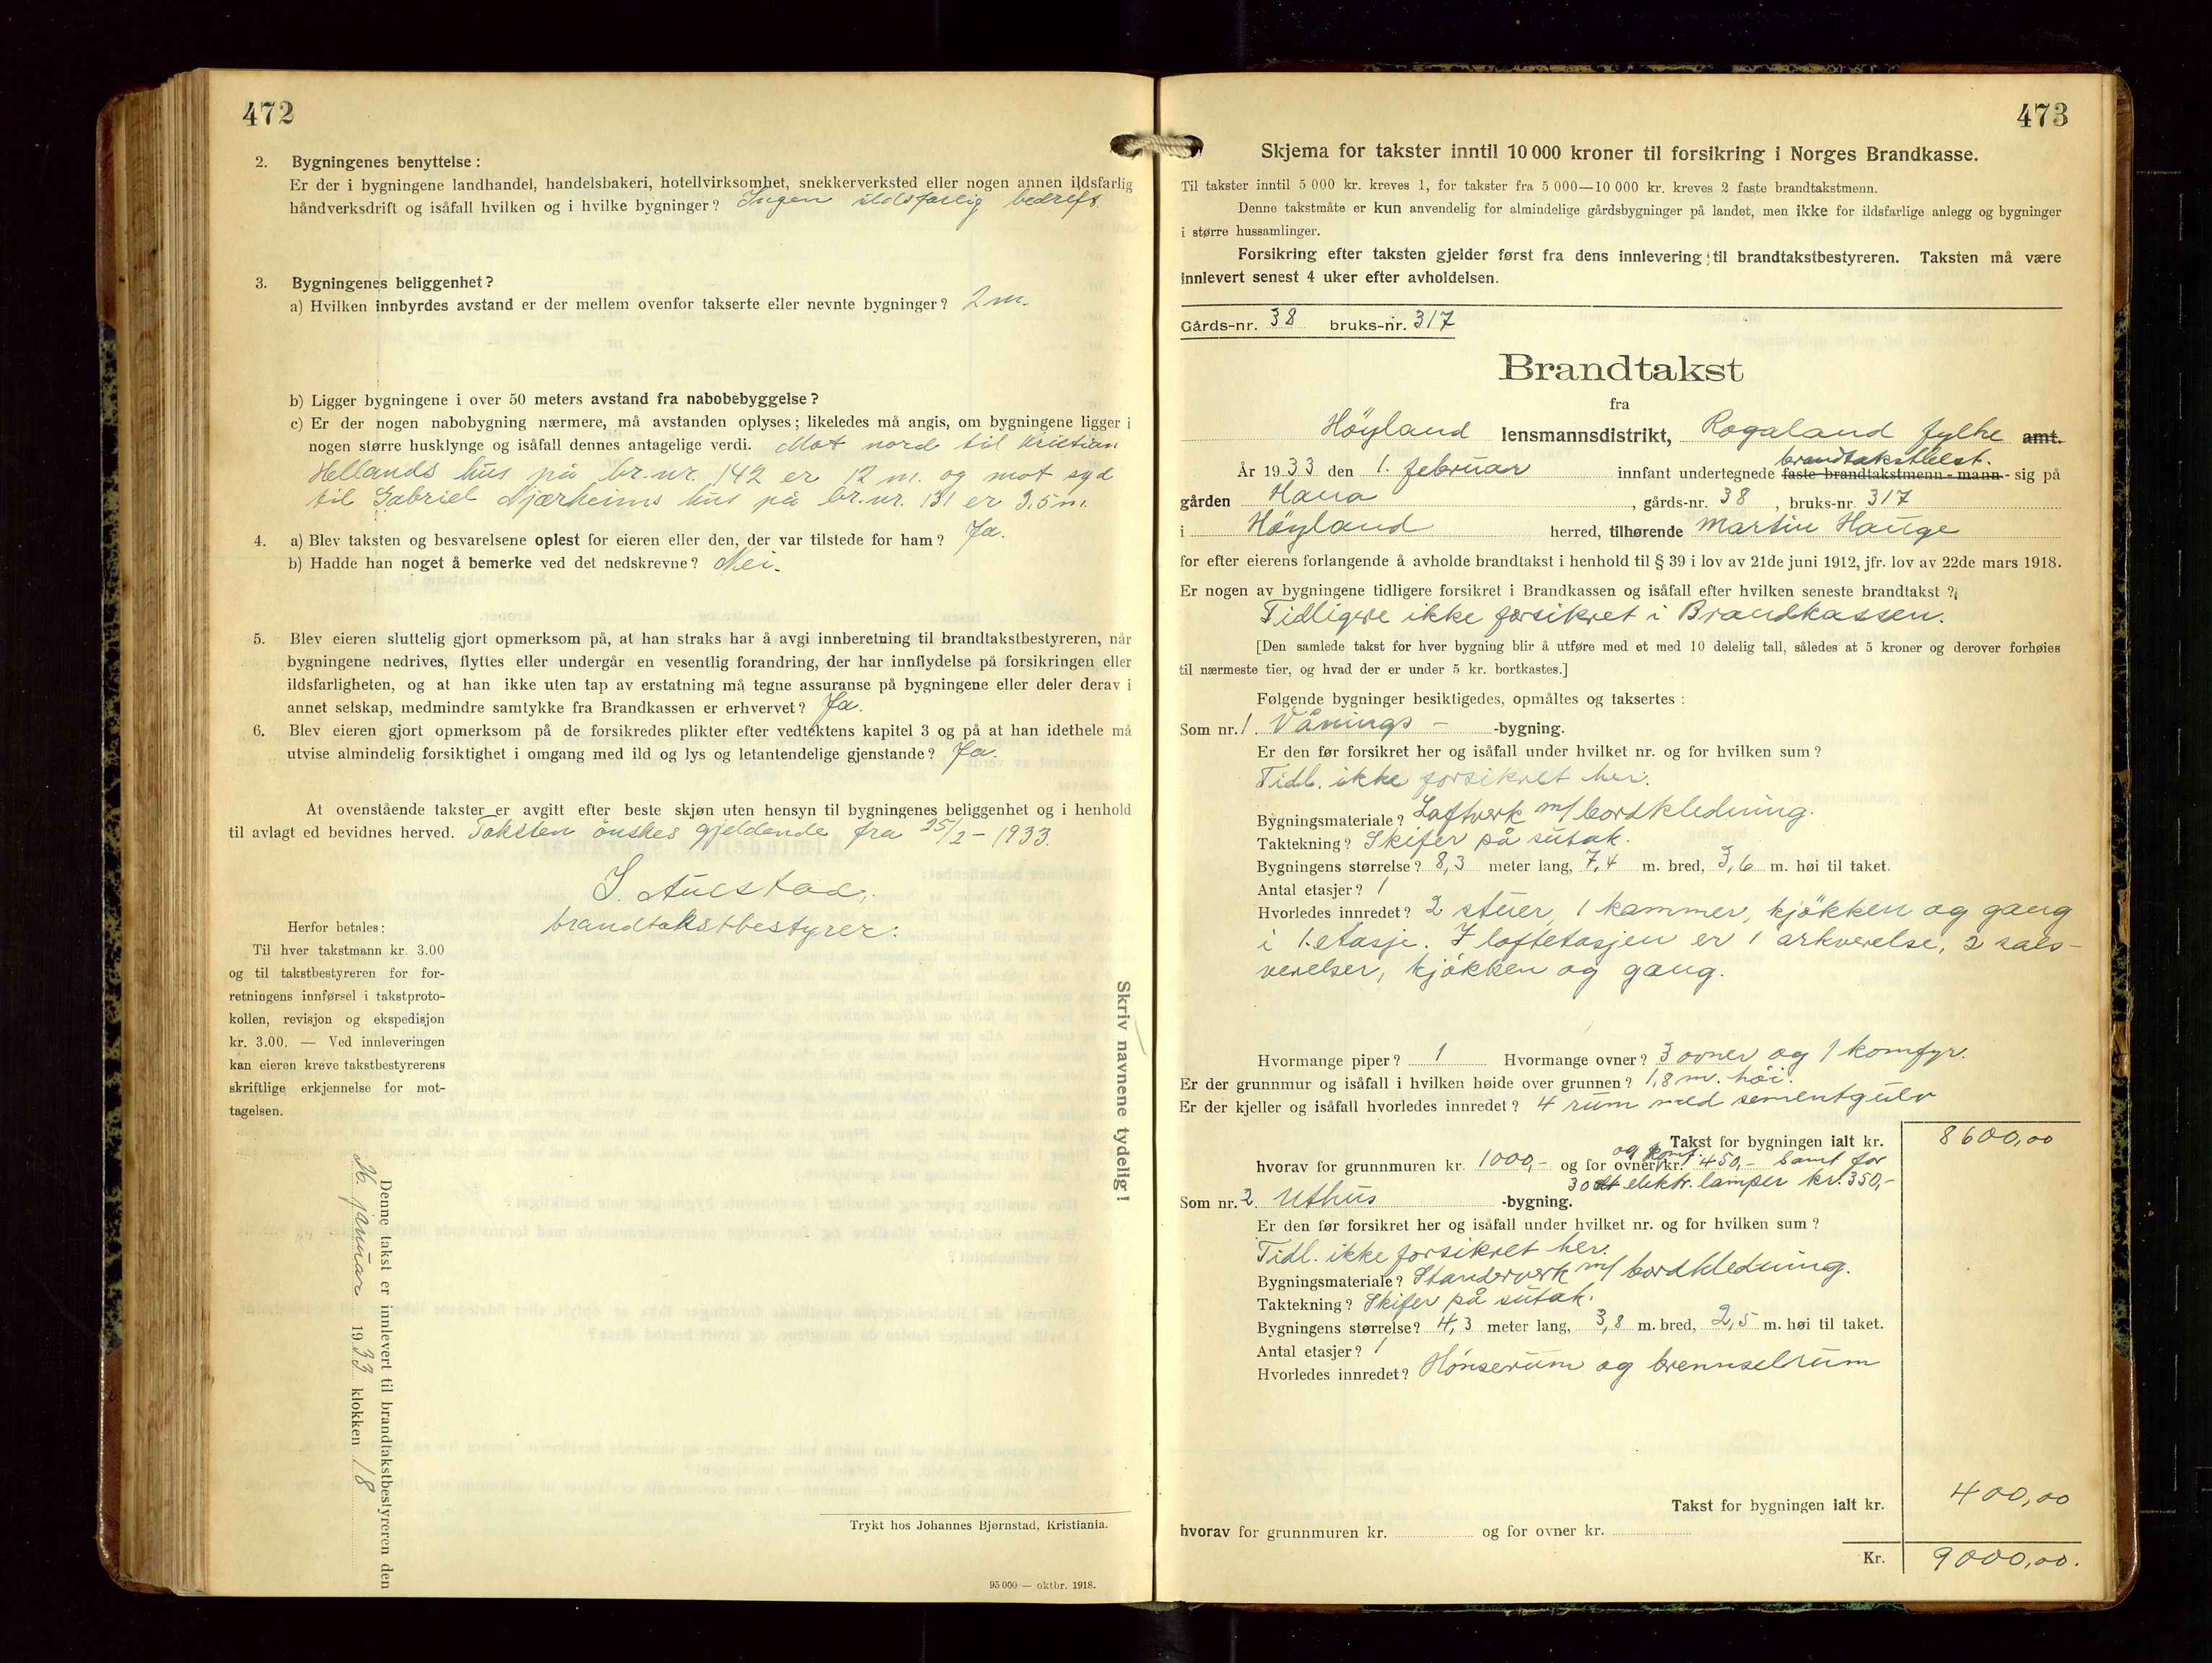 472
2. Bygningenes benyttelse:
Er der i bygningene landhandel, handelsbakeri, hotellvirksomhet, snekkerverksted eller nogen annen ildsfarlig
håndverksdrift og isåfall hvilken og i hvilke bygninger? Ingen ildsfarlig bedrift.
3. Bygningenes beliggenhet?
a) Hvilken innbyrdes avstand er der mellem ovenfor takserte eller nevnte bygninger? 2 m.
b) Ligger bygningene i over 50 meters avstand fra nabobebyggelse?
c) Er der nogen nabobygning nærmere, må avstanden oplyses; likeledes må angis, om bygningene ligger i
nogen større husklynge og isåfall dennes antagelige verdi. Mot nord til Kristian
Hellands hus på br.nr. 142 er 12 m. og mot syd
til Gabriel Njærheims hus på br.nr. 131 er 3,5 m.
4. a) Blev taksten og besvarelsene oplest for eieren eller den, der var tilstede for ham? Ja.
b) Hadde han noget å bemerke ved det nedskrevne? Nei.
5. Blev eieren sluttelig gjort opmerksom på, at han straks har å avgi innberetning til brandtakstbestyreren, når
bygningene nedrives, flyttes eller undergår en vesentlig forandring, der har innflydelse på forsikringen eller
ildsfarligheten, og at han ikke uten tap av erstatning må tegne assuranse på bygningene eller deler derav i
annet selskap, medmindre samtykke fra Brandkassen er erhvervet? Ja.
6. Blev eieren gjort opmerksom på de forsikredes plikter efter vedtektens kapitel 3 og på at han idethele må
utvise almindelig forsiktighet i omgang med ild og lys og letantendelige gjenstande? Ja.
At ovenstående takster er avgitt efter beste skjøn uten hensyn til bygningenes beliggenhet og i henhold
til avlagt ed bevidnes herved. Taksten ønskes gjeldende fra 25/2 - 1933.
S. Auestad,
brandtakstbestyrer.
Herfor betales:
Til hver takstmann kr. 3.00
og til takstbestyreren for for-
retningens innførsel i takstproto-
kollen, revisjon og ekspedisjon
kr. 3.00. — Ved innleveringen
kan eieren kreve takstbestyrerens
skriftlige erkjennelse for mot-
tagelsen.
Skriv navnene tydelig!
Denne takst er innlevert til brandtakstbestyreren den
januar 1933 klokken 18
Trykt hos Johannes Bjørnstad, Kristiania.
95 000 — oktbr. 1918.
473
Skjema for takster inntil 10 000 kroner til forsikring i Norges Brandkasse.
Til takster inntil 5 000 kr. kreves 1, for takster fra 5 000—10 000 kr. kreves 2 faste brandtakstmenn.
Denne takstmåte er kun anvendelig for almindelige gårdsbygninger på landet, men ikke for ildsfarlige anlegg og bygninger
i større hussamlinger.
Forsikring efter taksten gjelder først fra dens innlevering til brandtakstbestyreren. Taksten må være
innlevert senest 4 uker efter avholdelsen.
Gårds-nr. 38 bruks-nr. 317
Brandtakst
fra
Høyland lensmannsdistrikt, Rogaland fylke amt.
År 1933 den 1. februar innfant undertegnede faste brandtakstmenn - mann - sig på
brandtakstbest.
gården Hana, gårds-nr. 38, bruks-nr. 317
i Høyland herred, tilhørende Martin Hauge
for efter eierens forlangende å avholde brandtakst i henhold til § 39 i lov av 21de juni 1912, jfr. lov av 22de mars 1918.
Er nogen av bygningene tidligere forsikret i Brandkassen og isåfall efter hvilken seneste brandtakst?
Tidligere ikke forsikret i Brandkassen.
[Den samlede takst for hver bygning blir å utføre med et med 10 delelig tall, således at 5 kroner og derover forhøies
til nærmeste tier, og hvad der er under 5 kr. bortkastes.]
Følgende bygninger besiktigedes, opmåltes og taksertes:
Som nr. 1 Vånings - -bygning.
Er den før forsikret her og isåfall under hvilket nr. og for hvilken sum?
Tidl. ikke forsikret her.
Bygningsmateriale? Laftverk m/ bordkledning.
Taktekning? Skifer på sutak.
Bygningens størrelse? 8,3 meter lang, 7,4 m. bred, 3,6 m. høi til taket.
Antal etasjer? 1
Hvorledes innredet? 2 stuer, 1 kammer, kjøkken og gang
i 1. etasje. I loftetasjen er 1 arkverelse, 2 sals-
verelser, kjøkken og gang.
Hvormange piper? 1 Hvormange ovner? 3 ovner og 1 komfyr.
Er der grunnmur og isåfall i hvilken høide over grunnen? 1,8 m. høi.
Er der kjeller og isåfall hvorledes innredet? 4 rum med sementgulv
Takst for bygningen ialt kr. 8600,00
hvorav for grunnmuren kr. 1000,- og for ovner og komf. kr. 450,- samt for
30 elektr. lamper kr. 350,-
Som nr. 2. Uthus -bygning.
Er den før forsikret her og isåfall under hvilket nr. og for hvilken sum?
Tidl. ikke forsikret her.
Bygningsmateriale? Standerverk m/ bordkledning.
Taktekning? Skifer på sutak.
Bygningens størrelse? 4,3 meter lang, 3,8 m. bred, 2,5 m. høi til taket.
Antal etasjer? 1
Hvorledes innredet? Hønserum og brennselrum
Takst for bygningen ialt kr. 400,00
hvorav for grunnmuren kr. og for ovner kr.
Kr. 9000,00.